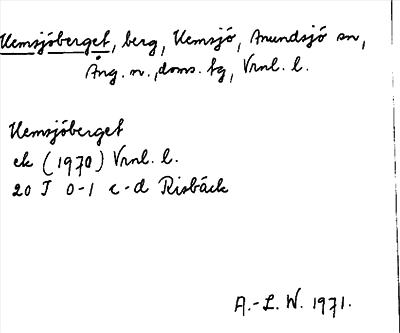 Kemsjöberget, berg, Kemsjö, Anundsjö sn,
Ång. n., doms. tg, Vrnl. l.
Kemsjöberget
ek (1970) Vrnl. l.
20 J 0-1 c-d Risbäck
A.-L. W. 1971.